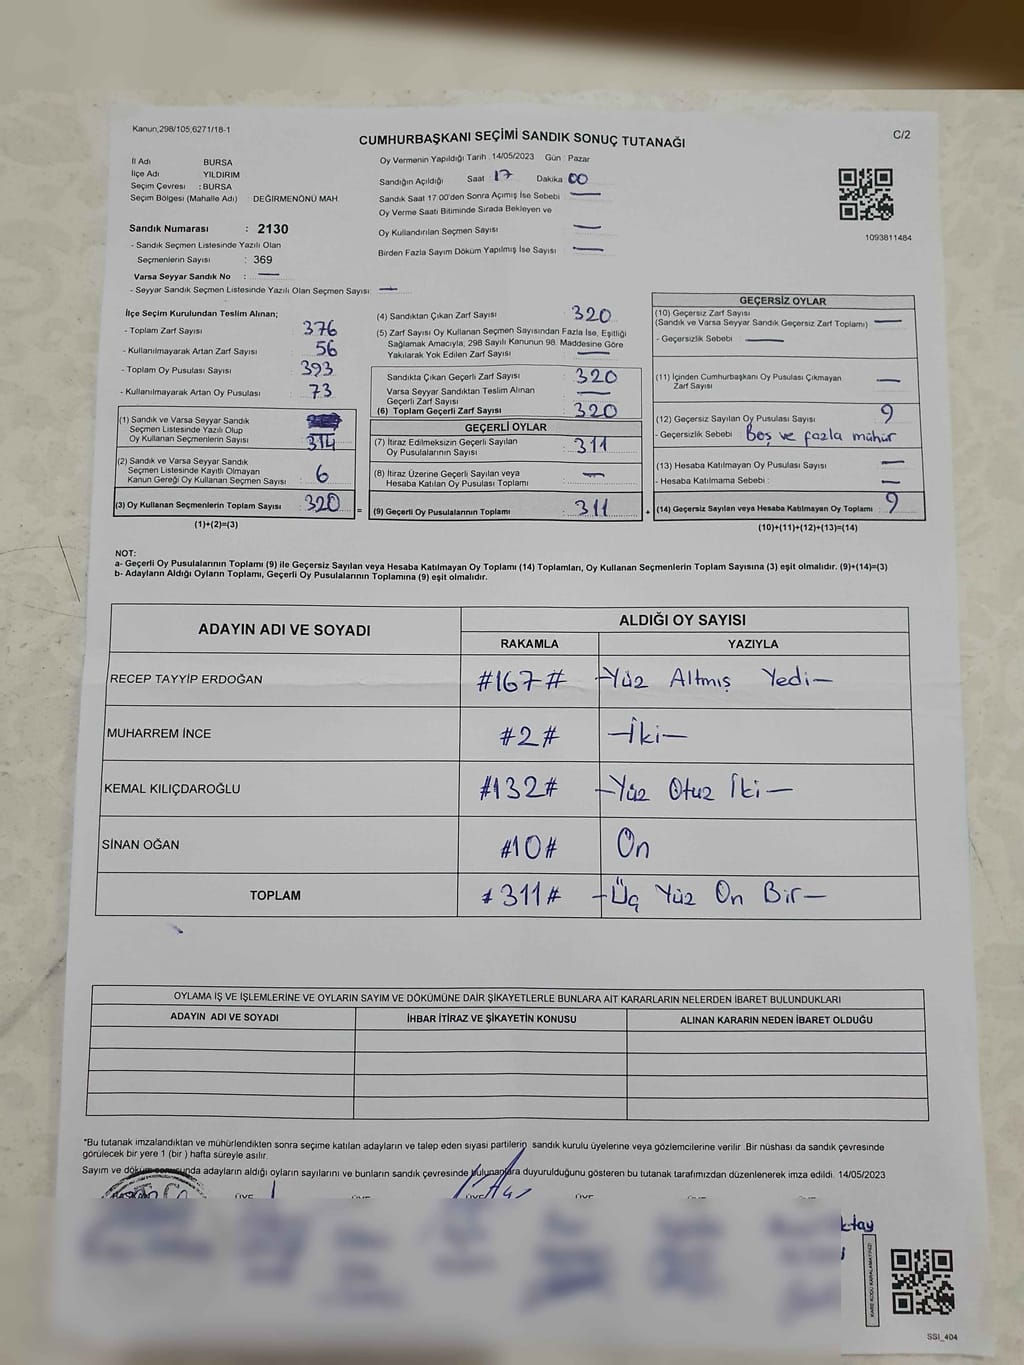 Kanun,298/105;6271/18-1
C/2
CUMHURBAŞKANI SEÇİMİ SANDIK SONUÇ TUTANAĞI
İl Adı BURSA
İlçe Adı YILDIRIM
Seçim Çevresi : BURSA
Seçim Bölgesi (Mahalle Adı) : DEĞİRMENÖNÜ MAH
Sandık Numarası : 2130
- Sandık Seçmen Listesinde Yazılı Olan
Seçmenlerin Sayısı : 369
Varsa Seyyar Sandık No : —
- Seyyar Sandık Seçmen Listesinde Yazılı Olan Seçmen Sayısı: —
Oy Vermenin Yapıldığı Tarih : 14/05/2023 Gün : Pazar
Sandığın Açıldığı Saat 17 Dakika 00
Sandık Saat 17.00'den Sonra Açımış İse Sebebi —
Oy Verme Saati Bitiminde Sırada Bekleyen ve
Oy Kullandırılan Seçmen Sayısı —
Birden Fazla Sayım Döküm Yapılmış İse Sayısı —
1093811484
İlçe Seçim Kurulundan Teslim Alınan;
- Toplam Zarf Sayısı : 376
- Kullanılmayarak Artan Zarf Sayısı : 56
- Toplam Oy Pusulası Sayısı : 393
- Kullanılmayarak Artan Oy Pusulası : 73
(1) Sandık ve Varsa Seyyar Sandık
Seçmen Listesinde Yazılı Olup
Oy Kullanan Seçmenlerin Sayısı : 314
(2) Sandık ve Varsa Seyyar Sandık
Seçmen Listesinde Kayıtlı Olmayan
Kanun Gereği Oy Kullanan Seçmen Sayısı : 6
(3) Oy Kullanan Seçmenlerin Toplam Sayısı : 320
(1)+(2)=(3)
(4) Sandıktan Çıkan Zarf Sayısı : 320
(5) Zarf Sayısı Oy Kullanan Seçmen Sayısından Fazla İse, Eşitliği
Sağlamak Amacıyla; 298 Sayılı Kanunun 98. Maddesine Göre
Yakılarak Yok Edilen Zarf Sayısı : —
Sandıkta Çıkan Geçerli Zarf Sayısı : 320
Varsa Seyyar Sandıktan Teslim Alınan
Geçerli Zarf Sayısı : —
(6) Toplam Geçerli Zarf Sayısı : 320
GEÇERLİ OYLAR
(7) İtiraz Edilmeksizin Geçerli Sayılan
Oy Pusulasının Sayısı : 311
(8) İtiraz Üzerine Geçerli Sayılan veya
Hesaba Katılan Oy Pusulası Toplamı : —
= (9) Geçerli Oy Pusulalarının Toplamı : 311
GEÇERSİZ OYLAR
(10) Geçersiz Zarf Sayısı
(Sandık ve Varsa Seyyar Sandık Geçersiz Zarf Toplamı) : —
- Geçersizlik Sebebi : —
(11) İçinden Cumhurbaşkanı Oy Pusulası Çıkmayan
Zarf Sayısı : —
(12) Geçersiz Sayılan Oy Pusulası Sayısı : 9
- Geçersizlik Sebebi : Boş ve fazla mühür
(13) Hesaba Katılmayan Oy Pusulası Sayısı : —
- Hesaba Katılmama Sebebi : —
+ (14) Geçersiz Sayılan veya Hesaba Katılmayan Oy Toplamı : 9
(10)+(11)+(12)+(13)=(14)
NOT:
a- Geçerli Oy Pusulalarının Toplamı (9) ile Geçersiz Sayılan veya Hesaba Katılmayan Oy Toplamı (14) Toplamları, Oy Kullanan Seçmenlerin Toplam Sayısına (3) eşit olmalıdır. (9)+(14)=(3)
b- Adayların Aldığı Oyların Toplamı, Geçerli Oy Pusulalarının Toplamına (9) eşit olmalıdır.
ADAYIN ADI VE SOYADI ALDIĞI OY SAYISI
RAKAMLA YAZIYLA
RECEP TAYYİP ERDOĞAN #167# -Yüz Altmış Yedi-
MUHARREM İNCE #2# -İki-
KEMAL KILIÇDAROĞLU #132# -Yüz Otuz İki-
SİNAN OĞAN #10# On
TOPLAM #311# -Üç Yüz On Bir-
OYLAMA İŞ VE İŞLEMLERİNE VE OYLARIN SAYIM VE DÖKÜMÜNE DAİR ŞİKAYETLERLE BUNLARA AİT KARARLARIN NELERDEN İBARET BULUNDUKLARI
ADAYIN ADI VE SOYADI İHBAR İTİRAZ VE ŞİKAYETİN KONUSU ALINAN KARARIN NEDEN İBARET OLDUĞU
*Bu tutanak imzalandıktan ve mühürlendikten sonra seçime katılan adayların ve talep eden siyasi partilerin sandık kurulu üyelerine veya gözlemcilerine verilir. Bir nüshası da sandık çevresinde
görülecek bir yere 1 (bir ) hafta süreyle asılır.
Sayım ve döküm sonucunda adayların aldığı oyların sayılarını ve bunların sandık çevresinde bulunanlara duyurulduğunu gösteren bu tutanak tarafımızdan düzenlenerek imza edildi. 14/05/2023
ÜYE ÜYE ÜYE ÜYE
ktay
KARE KODU KARALAMAYINIZ!
SSI_404